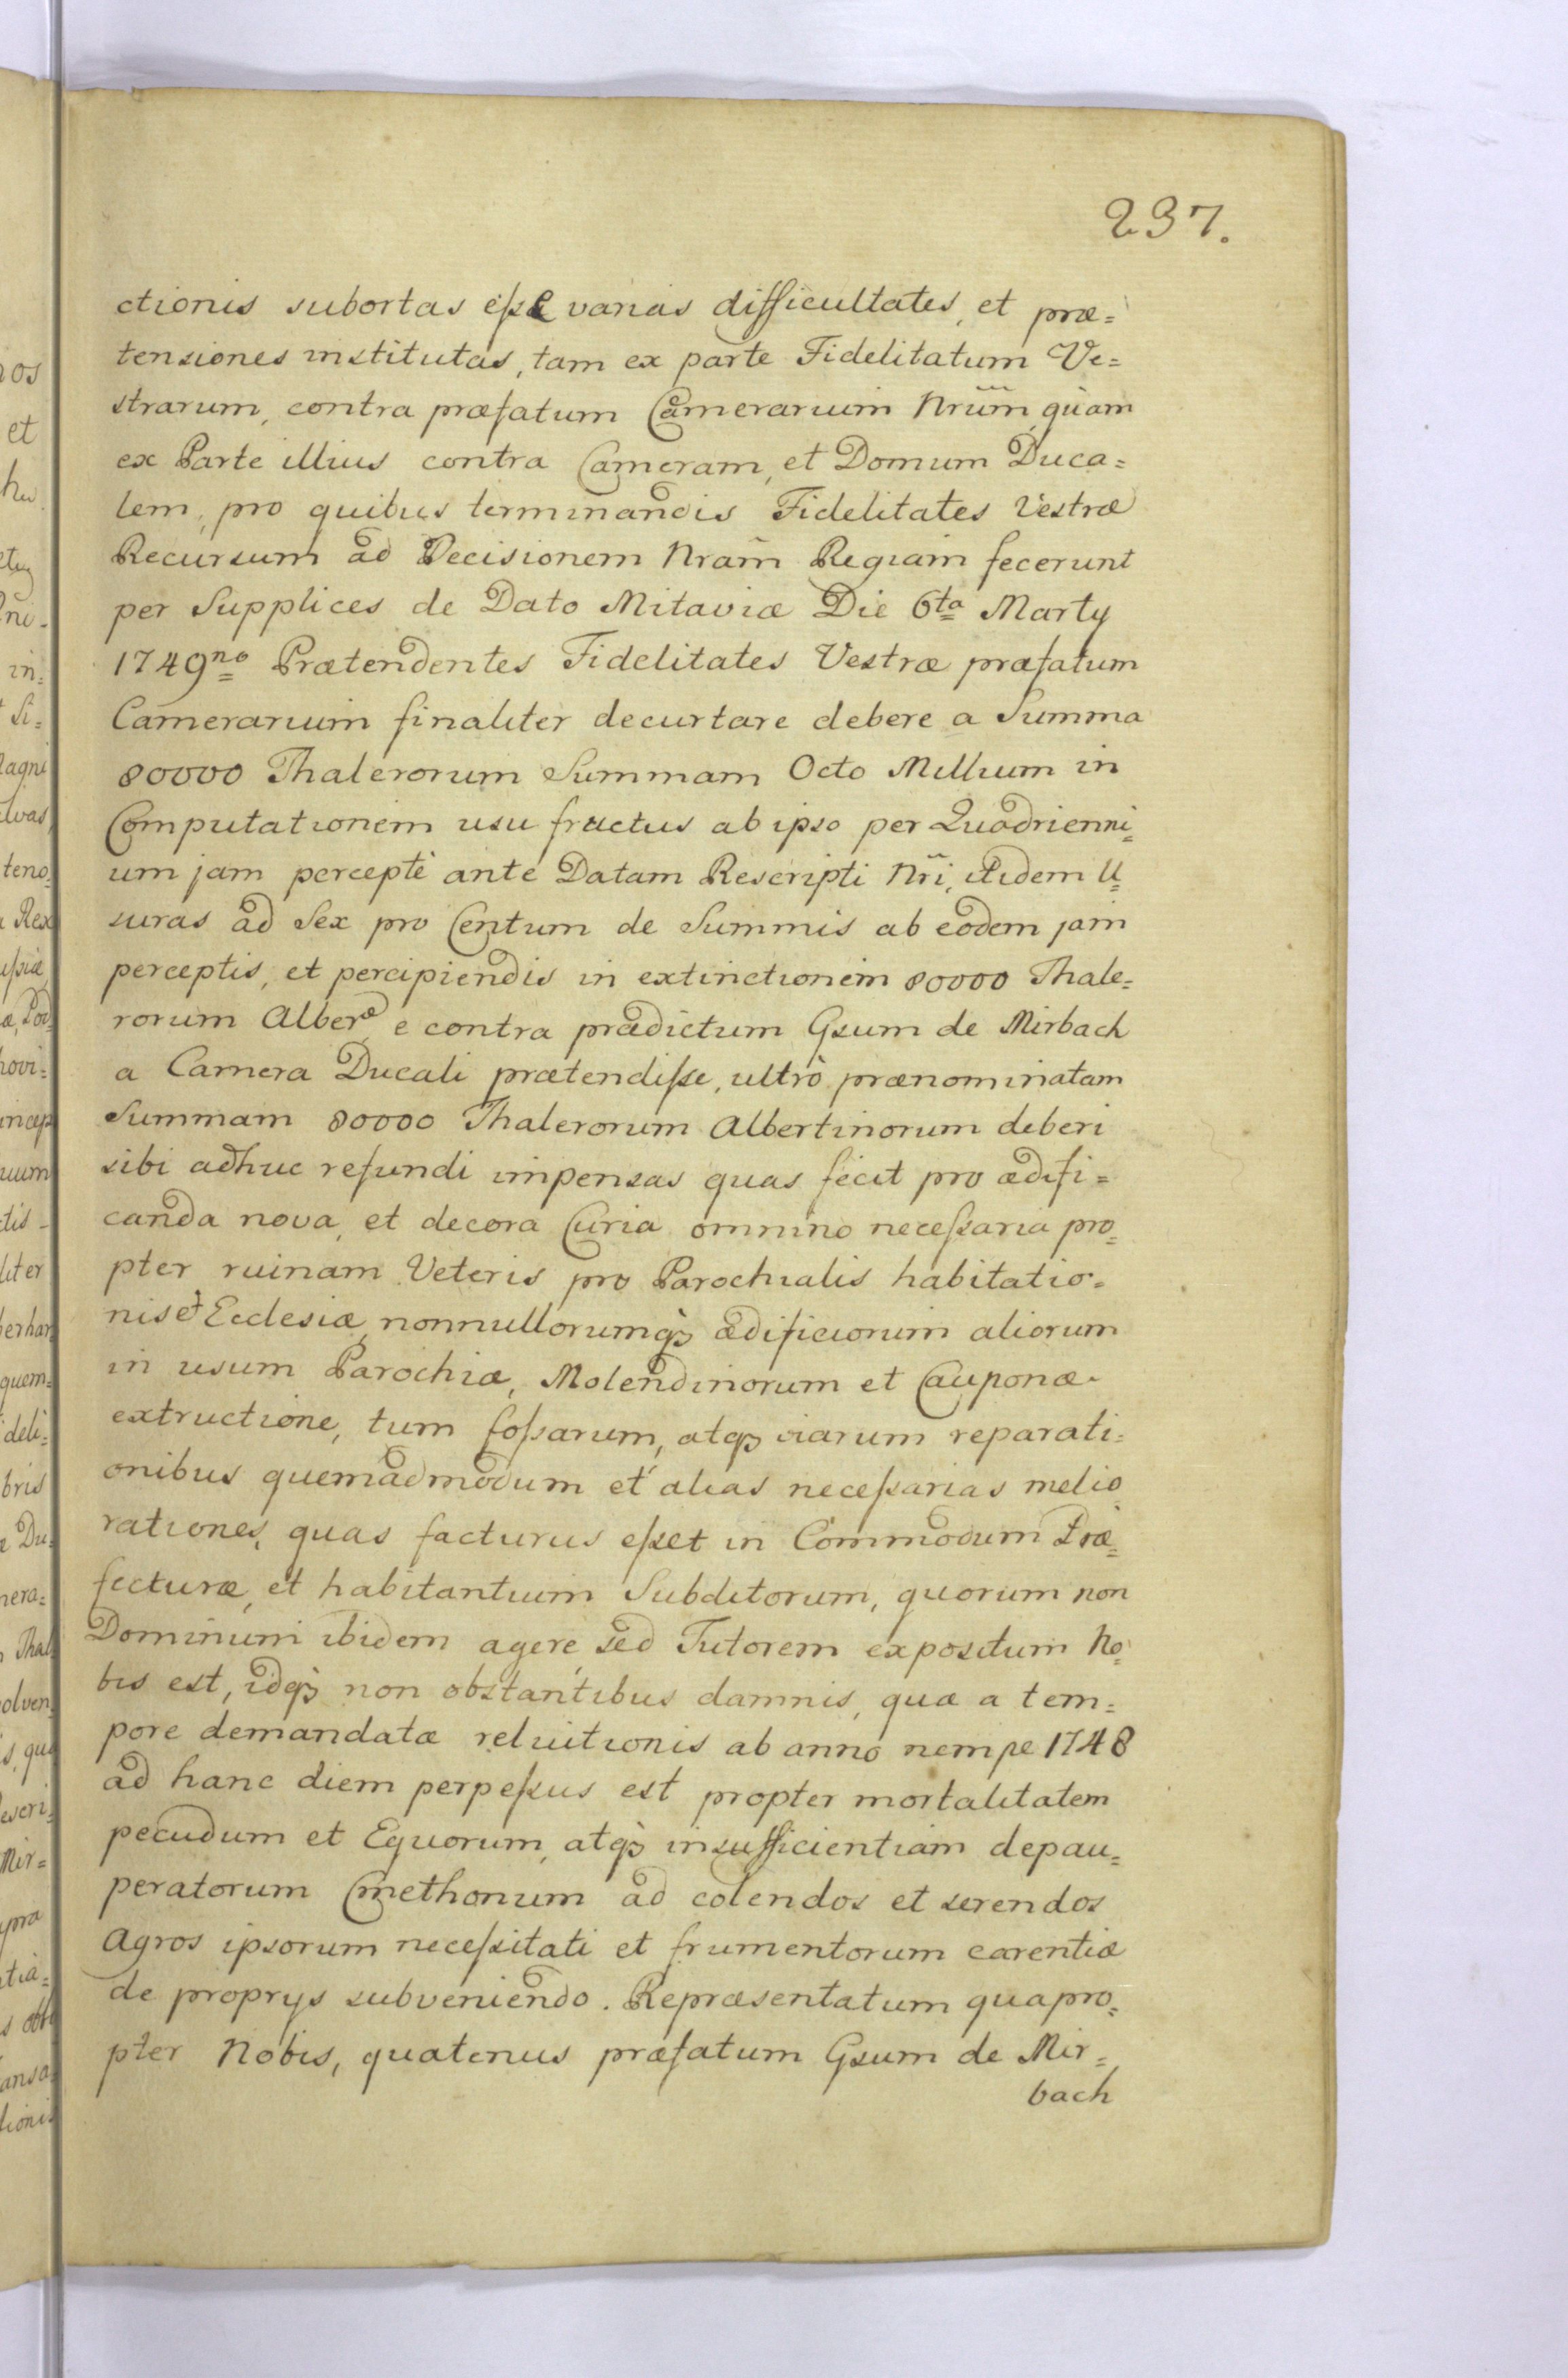 237.
ctionis subortas eſse varias difficultates, et præ=
tensiones institutas, tam ex parte Fidelitatum Ve=
strarum, contra præfatum Camerarium Nrũm, quàm
ex Parte illius contra Cameram, et Domum Duca=
lem, pro quibus terminandis Fidelitates Vestræ
Recursum ad Decisionem Nram̃ Regiam fecerunt
per Supplices de Dato Mitaviæ Die 6ta Martij
1749no Prætendentes Fidelitates Vestræ præfatum
Camerarium finaliter decurtare debere a Summa
80000 Thalerorum Summam Octo Millium in
Computationem usu fructus ab ipso per Quadrienni=
um jam percepti ante Datam Rescripti Nrĩ, itidem U=
suras ad Sex pro Centum de Summis ab eodem jam
perceptis, et percipiendis in extinctionem 80000 Thale=
rorum Alber: e contra prædictum Gsum de Mirbach
a Camera Ducali prætendiſse, ultrò prænominatam
Summam 80000 Thalerorum Albertinorum deberi
sibi adhuc refundi impensas quas fecit pro ædifi=
canda nova, et decora Curia omnino neceſsaria pro=
pter ruinam Veteris pro Parochialis habitatio=
nis et Ecclesiæ, nonnullorumq̀ ædificiorum aliorum
in usum Parochiæ, Molendinorum et Cauponæ
extructione, tum foſsarum, atq̀ viarum reparati=
onibus quemadmodum et alias neceſsarias melio
rationes, quas facturus eſset in Commodum Præ=
fecturæ, et habitantium Subditorum, quorum non
Dominum ibidem agere sed Tutorem expositum No=
bis est, idq̀ non obstantibus damnis, quæ a tem=
pore demandatæ reluitionis ab anno nempe 1748
ad hanc diem perpeſsus est propter mortalitatem
pecudum et Equorum, atq̀ insufficientiam depau=
peratorum Cmethonum ad colendos et serendos
Agros ipsorum neceſsitati et frumentorum carentiæ
de proprijs subveniendo. Repræsentatum quapro=
pter Nobis, quatenus præfatum Gsum de Mir=
bach